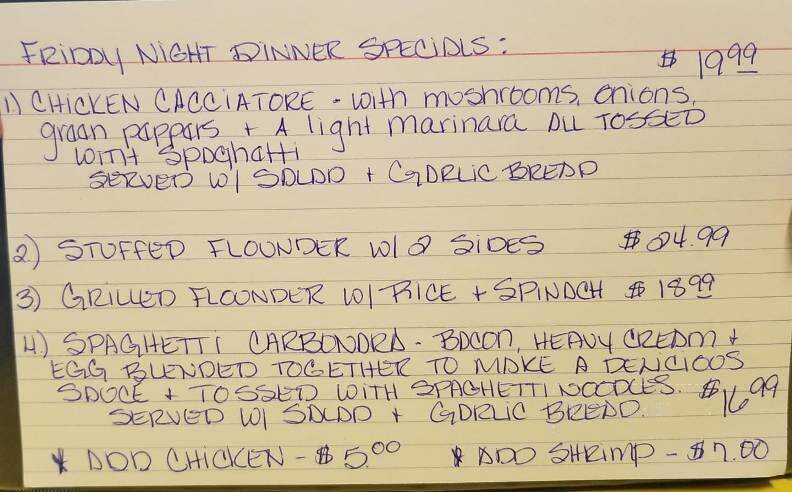 FRIDAY NIGHT DINNER SPECIALS:
$ 19.99
1) CHICKEN CACCIATORE - with mushrooms, onions,
green peppers + A light marinara ALL TOSSED
WITH spaghetti
SERVED W/ SALAD + GARLIC BREAD
2) STUFFED FLOUNDER W/ 2 SIDES $ 24.99
3) GRILLED FLOUNDER W/ RICE + SPINACH $ 18.99
4) SPAGHETTI CARBONARA - BACON, HEAVY CREAM +
EGG BLENDED TOGETHER TO MAKE A DELICIOUS
SAUCE + TOSSED WITH SPAGHETTI NOODLES. $ 16.99
SERVED W/ SALAD + GARLIC BREAD.
* ADD CHICKEN - $ 5.00 * ADD SHRIMP - $ 7.00